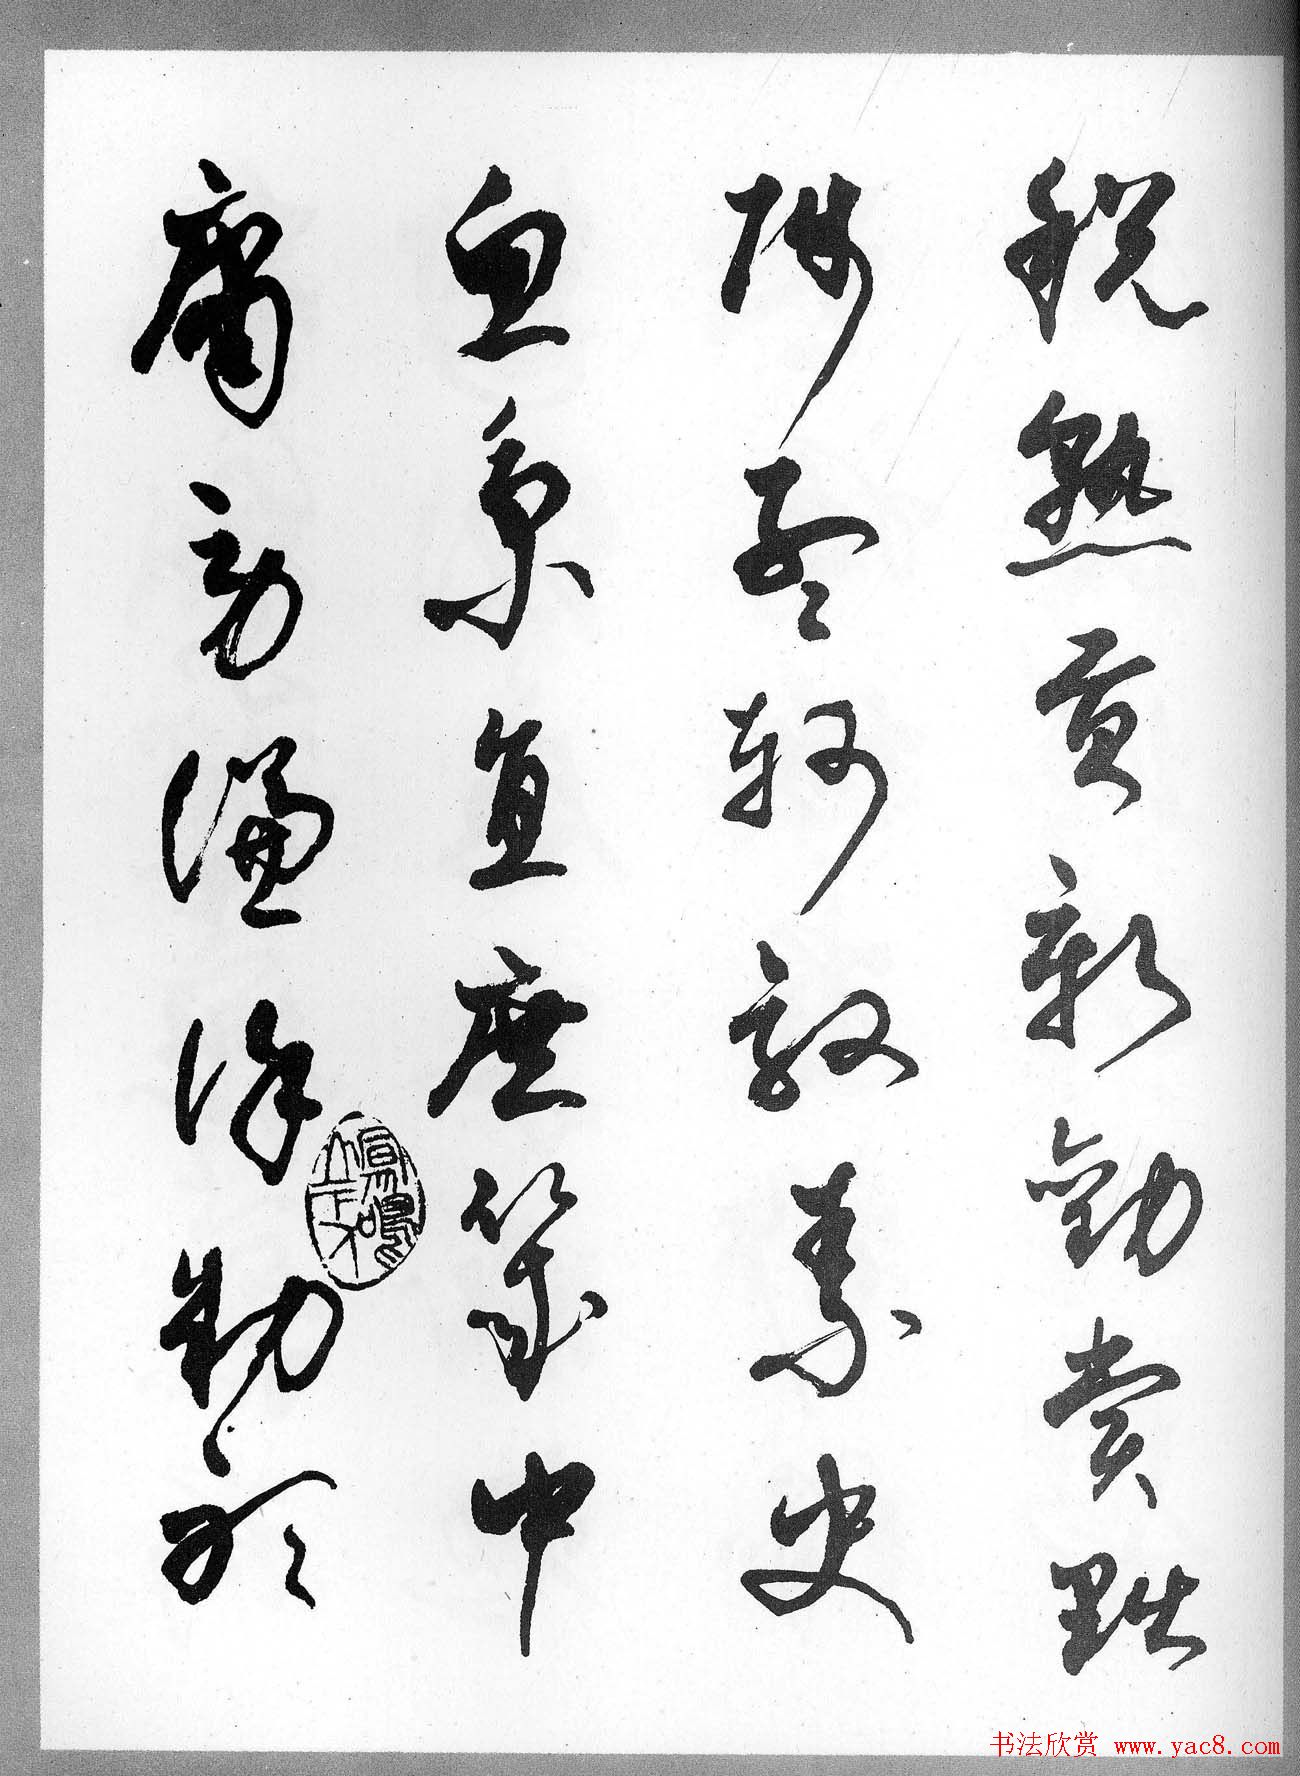 稅熟貢新勸賞黜
陟孟軻敦素史
魚秉直庶幾中
庸勞謙謹勅聆
书法欣赏 www.yac8.com